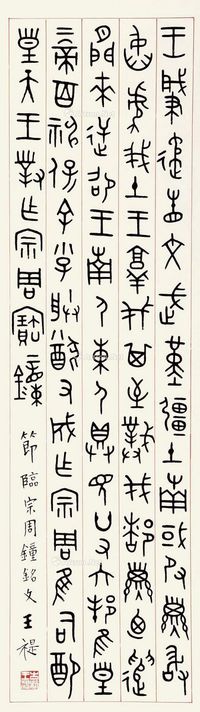 王肇遹省文武堇疆土南或𠬝孳敢
臽虐我土王敦伐其至撲伐厥都𠬝孳廼遣
閒來逆卲王南尸東尸具見廿又六邦隹皇上
帝百神保余小子朕猷又成亡競我隹司配
皇天王對乍宗周寶鐘
節臨宗周鐘銘文 王禔